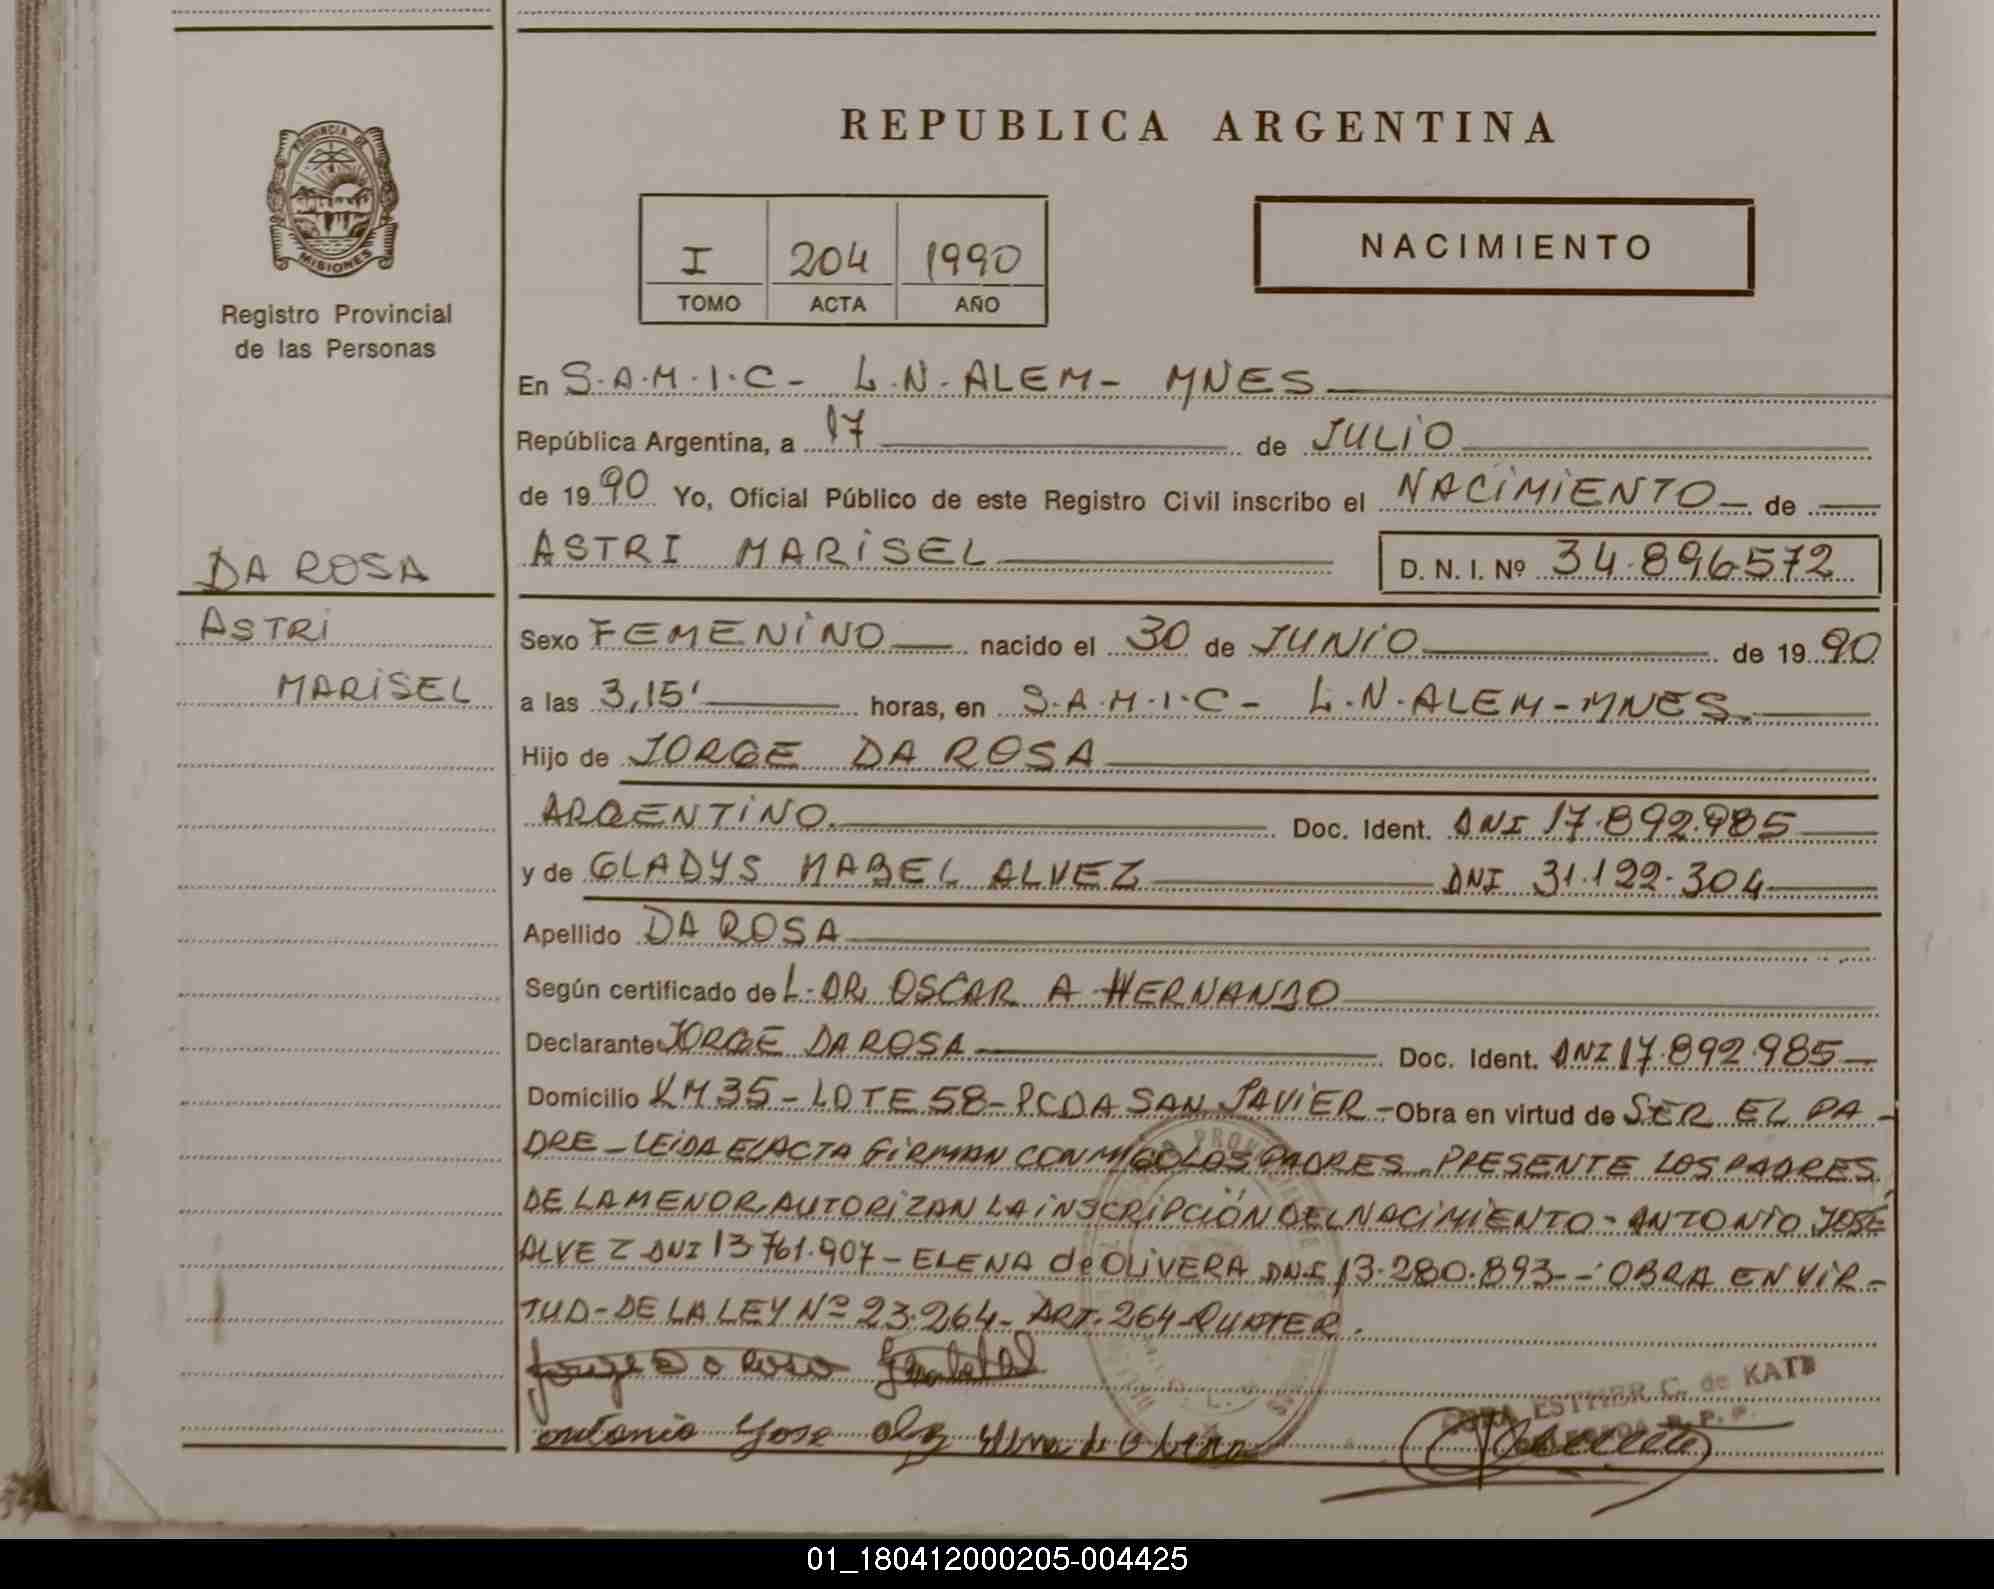 REPUBLICA ARGENTINA
PROVINCIA DE
MISIONES
Registro Provincial
de las Personas
I 204 1990
TOMO ACTA AÑO
NACIMIENTO
En S.A.M.I.C- L.N.ALEM- MNES
República Argentina, a 17 de JULIO
de 1990 Yo, Oficial Público de este Registro Civil inscribo el NACIMIENTO de
ASTRI MARISEL D. N. I. Nº 34.896572
DA ROSA
ASTRI
MARISEL
Sexo FEMENINO nacido el 30 de JUNIO de 1990
a las 3,15' horas, en S.A.M.I.C- L.N.ALEM-MNES
Hijo de JORGE DA ROSA
ARGENTINO Doc. Ident. DNI 17.892.985
y de GLADYS MABEL ALVEZ DNI 31.122.304
Apellido DA ROSA
Según certificado de L. DR. OSCAR A HERNANDO
Declarante JORGE DA ROSA Doc. Ident. DNI 17.892.985
Domicilio KM35-LOTE 58-PCDA SAN JAVIER-Obra en virtud de SER EL PA-
DRE-LEIDA EL ACTA FIRMAN CONMIGO LOS PADRES. PRESENTE LOS PADRES
DE LA MENOR, AUTORIZAN LA INSCRIPCIÓN DEL NACIMIENTO- ANTONIO JOSÉ
ALVEZ DNI 13.761.907-ELENA de OLIVERA DNI 13.280.893-- OBRA EN VIR-
TUD-DE LA LEY Nº 23.264- ART. 264 QUATER.
Jorge Da Rosa
antonio Jose Elena de Olivera
ESTHER C. de KATZ
01_180412000205-004425